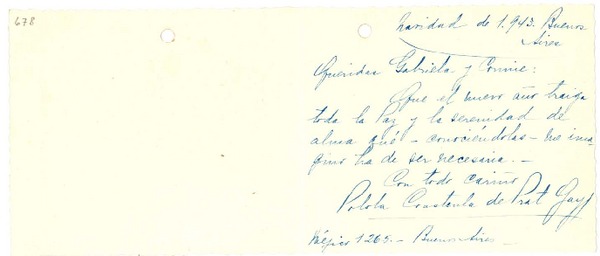 678
Navidad de 1.943. Buenos
Aires
Queridas Gabriela y Connie:
Que el nuevo año traiga
toda la Paz y la serenidad de
alma qué - conociéndolas - me ima-
gino ha de ser necesaria. -
Con todo cariño
Polola Constenla de Prat Gay
Méjico 1265. - Buenos Aires